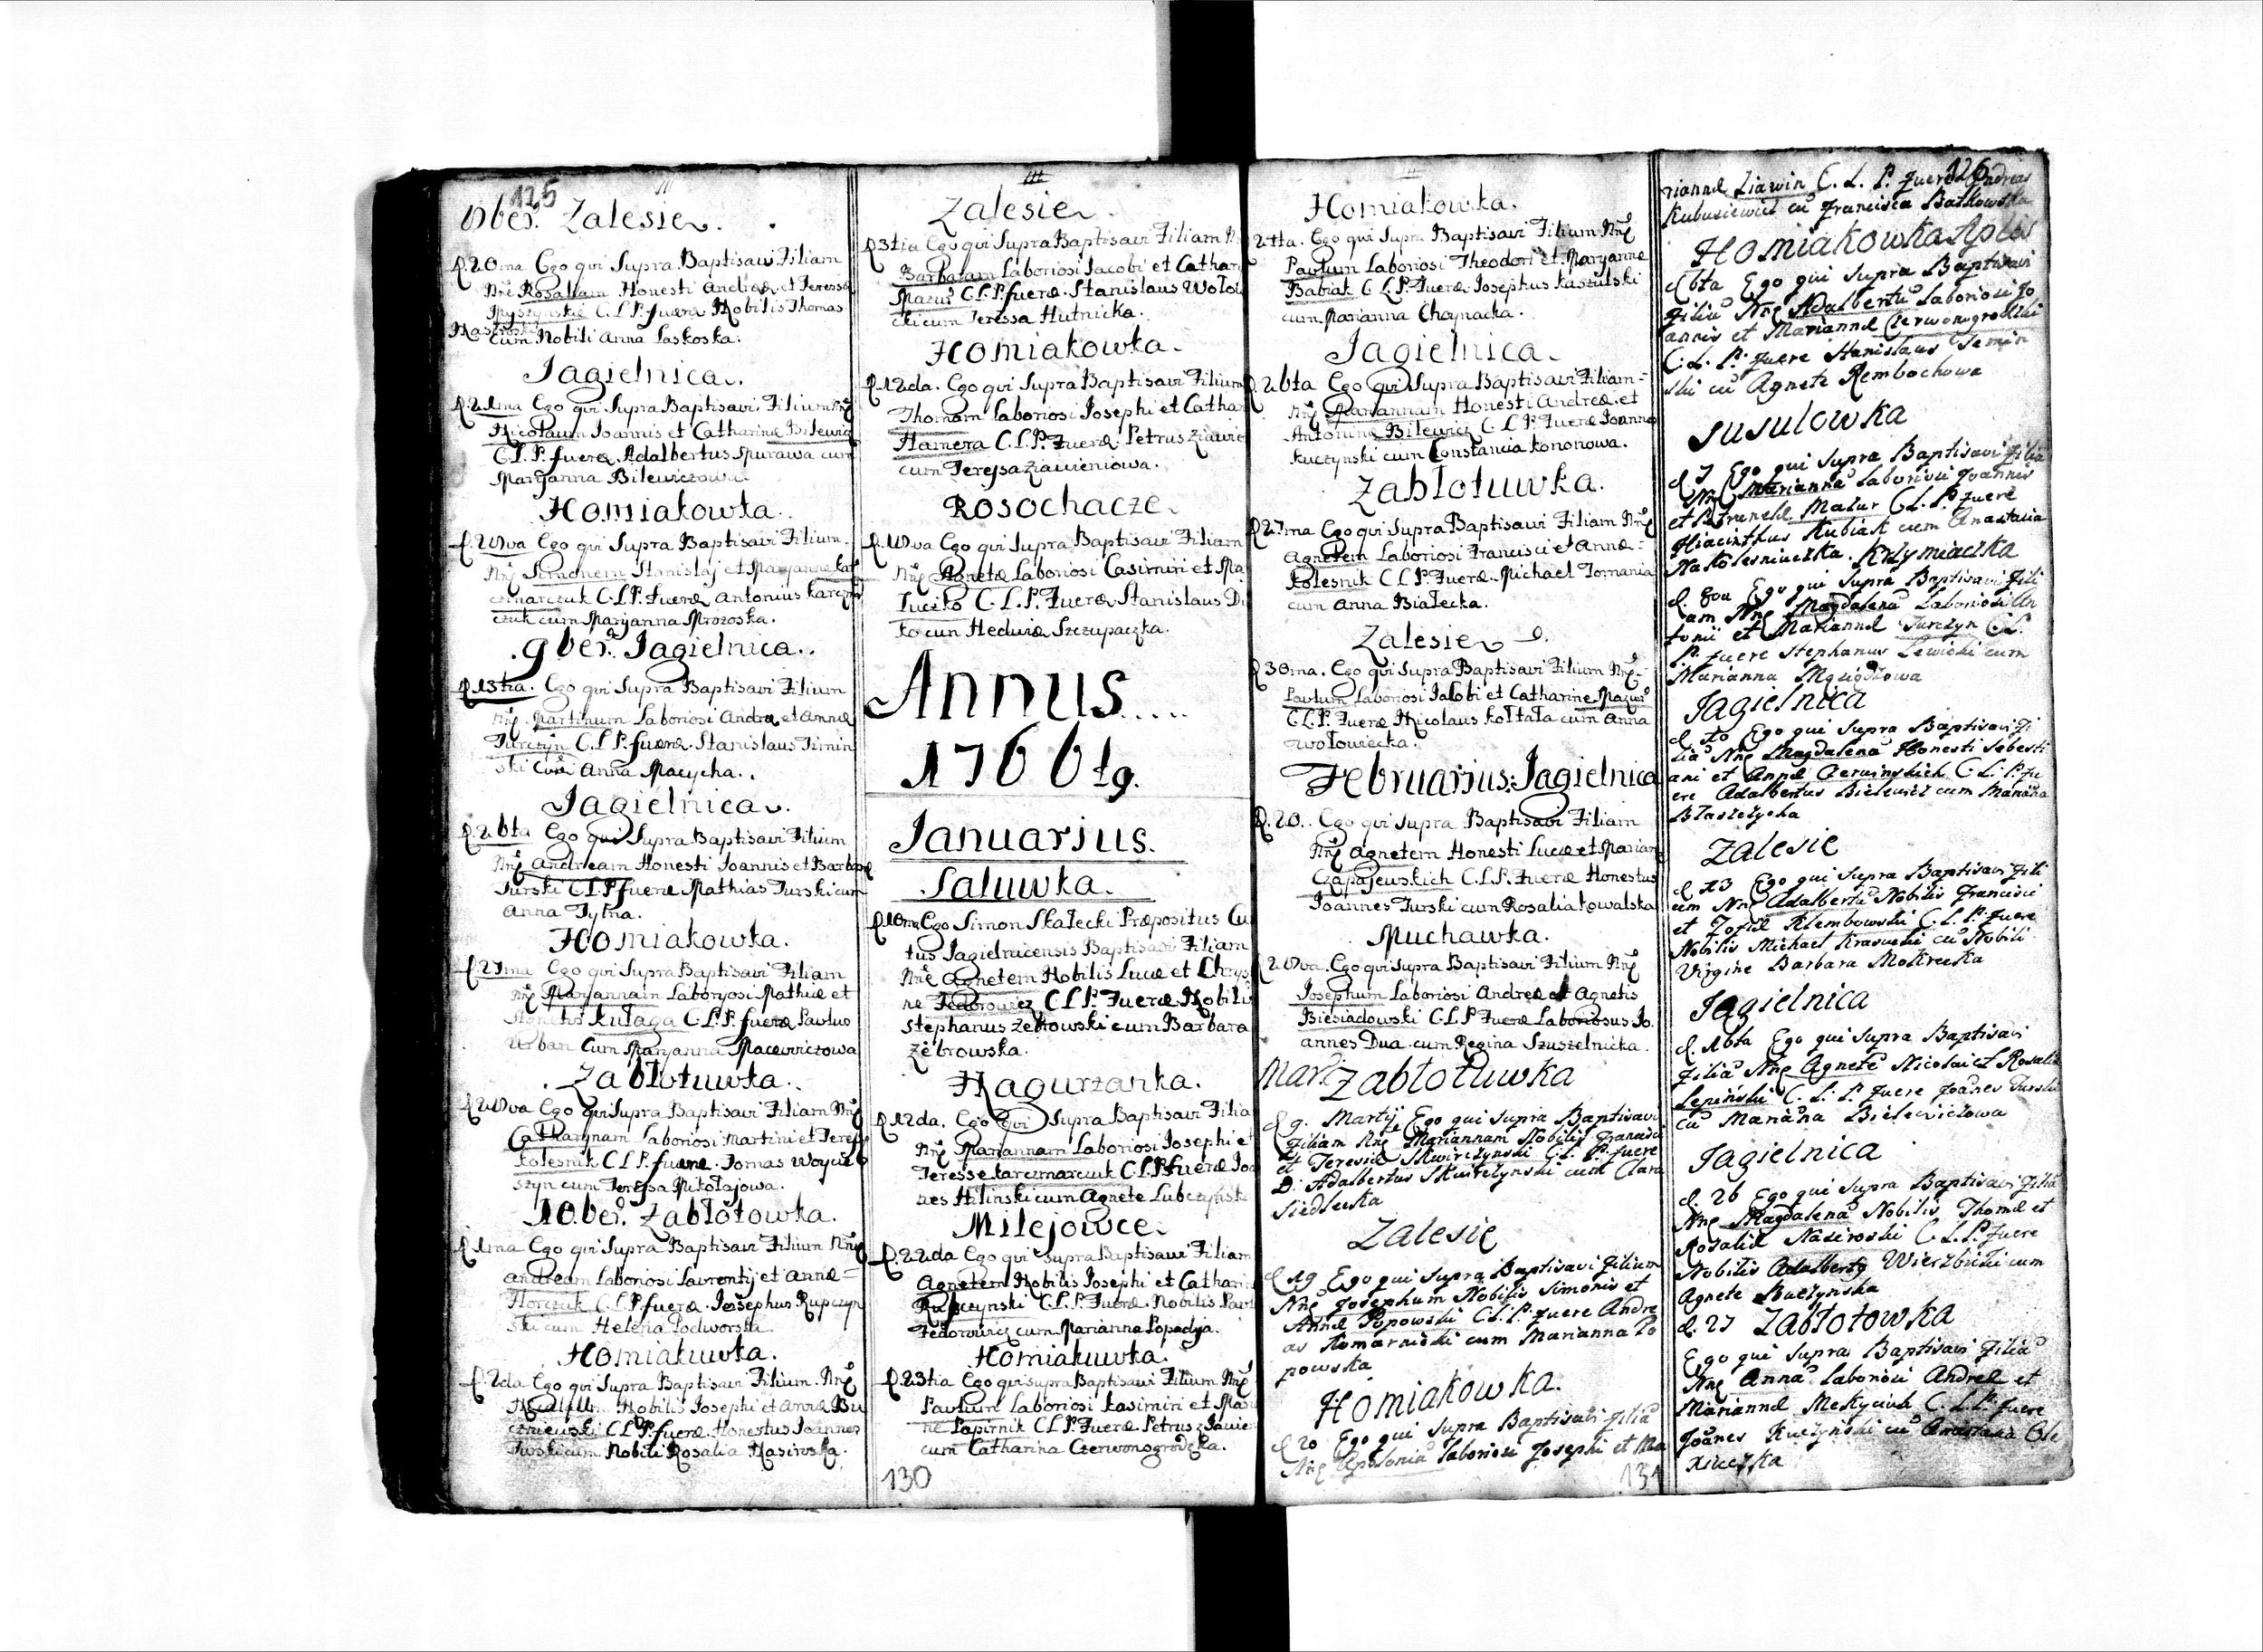 125
8ber. Zalesie.
d. 20ma Ego qui Supra Baptisavi Filiam
Nne Rosaliam Honesti Andreæ et Teressæ
C.L.P. fueræ Nobilis Thomas
Nasiroski
cum Nobili Anna Laskoska.
Jagielnica.
d. 21ma Ego qui Supra Baptisavi Filium Nne
Nicolaum Joannis et Catharinæ Bilewicz
C.L.P. fueræ Adalbertus Spurawa cum
Maryanna Bilewiczowa
Homiakowka.
d. 28va Ego qui Supra Baptisavi Filium
Nne Simonem Stanislaj et Maryannæ Kar
czmarczuk C.L.P. Fueræ Antonius Karczm
czuk cum Maryanna Mrozoska.
9ber. Jagielnica.
d. 13tia. Ego qui Supra Baptisavi Filium
Nne Martinum Laboriosi Andreæ et Annæ
Turczyn C.L.P. fueræ Stanislaus Timin
ski cum Anna Macycha.
Jagielnica.
d. 26ta Ego qui Supra Baptisavi Filium
Nne Andream Honesti Joannis et Barbaræ
Turski C.L.P. fueræ Mathias Turski cum
Anna Tylna.
Homiakowka.
d. 27ma Ego qui Supra Baptisavi Filiam
Nne Maryannam Laboryosi Mathiæ et
Agnetis Kulaga C.L.P. fueræ Pavluo
Urban Cum Maryanna Macewiczowa
Zabłotuwka.
d. 28va Ego qui Supra Baptisavi Filiam Nne
Catharynam Laboriosi Martini et Teress
Kolesnik C.L.P. fueræ Tomas Woycie
szyn cum Teressa Mikołajowa.
10ber. Zabłotowka.
d. 1ma Ego qui Supra Baptisavi Filium Nne
Andream Laboriosi Laurentij et Annæ
C.L.P. fueræ Josephus Rupczyn
ski cum Helena Podworska.
Homiakuwka.
d. 2da Ego qui Supra Baptisavi Filium Nne
Nobilis Josephi et Annæ Bu
czniewski C.L.P. fueræ Honestus Joannes
Turski cum Nobili Rosalia Nasiroska.
Zalesie
d. 3tia Ego qui Supra Baptisavi Filiam N
Barbaram Laboriosi Jacobi et Cathar
Mazur C.L.P. fueræ Stanislaus Wolow
cki cum Teressa Hutnicka.
Homiakowka.
d. 12da. Ego qui Supra Baptisavi Filium
Thomam Laboriosi Josephi et Cathar
Hamera C.L.P. Fueræ Petrus Ziawie
cum Teressa Ziawieniowa.
Rosochacze
d. 18va Ego qui Supra Baptisavi Filiam
Nne Agnetæ Laboriosi Casimiri et Ma
Tucito C.L.P. Fueræ Stanislaus Di
ko cun Hedwia Szczupaczka.
Annus....
1766tg.
Januarius.
Saluwka.
d. 10ma Ego Simon Skałecki Præpositus Cu
tus Jagielnicensis Baptisavi Filiam
Nne Agnetem Nobilis Lucæ et Chrys
næ Fedorowicz C.L.P. Fueræ Nobilis
Stephanus Zebrowski cum Barbara
Zebrowska.
Nagurzanka.
d. 12da. Ego qui Supra Baptisavi Filia
Nne Mariannam Laboriosi Josephi et
Teressæ Karczmarczuk C.L.P. fueræ Joa
nes Hilinski cum Agnete Lubczynsk
Milejowce
d. 22da Ego qui supra Baptisavi Filiam
Agnetem Nobilis Josephi et Catharin
Rupczynski C.L.P. Fueræ Nobilis Paul
Fedorowicz cum Marianna Popadya.
Homiakuwka.
d. 23tia Ego qui supra Baptisavi Filium Nne
Paulum Laboriosi Kasimiri et Ma
næ Papirnik C.L.P. Fueræ Petrus Ziawie
cum Catharina Czerwonogrodzka.
130
Homiakowka.
24ta. Ego qui Supra Baptisavi Filium Nne
Pavlum Laboriosi Theodori et Maryannæ
Babiak C.L.P. Fueræ Josephus Kaszulski
cum Marianna Choynacka.
Jagielnica.
d. 26ta Ego qui Supra Baptisavi Filiam
Nne Mariannam Honesti Andreæ et
Antoninæ Bilewicz C.L.P. Fueræ Joannes
Kuczynski cum Constancia Kononowa.
Zabłotuwka.
d. 27ma Ego qui Supra Baptisavi Filiam Nne
Agnetem Laboriosi Francisci et Annæ
Kolesnik C.L.P. Fueræ Michael Tomania
cum Anna Białecka.
Zalesie
d. 30ma. Ego qui Supra Baptisavi Filium Nne
Pavlum Laboriosi Jacobi et Catharinæ Mazur
C.L.P. Fueræ Nicolaus Kołtała cum Anna
Wołowiecka.
Februarius: Jagielnica
d. 20. Ego qui Supra Baptisavi Filiam
Nne Agnetem Honesti Lucæ et Marian
Czapajewskich C.L.P. Fueræ Honestus
Joannes Turski cum Rosalia Kowalska
Muchawka.
28va. Ego qui Supra Baptisavi Filium Nne
Josephum Laboriosi Andreæ et Agnetis
Biesiadowski C.L.P. Fueræ Laboriosus Jo
annes Dua cum Regina Szuszelnicka.
Marti Zabłotuwka
d. 9. Martij Ego qui supra Baptisavi
filiam Nne Mariannam Nobilis Francisci
et Teresiæ Skwirczynski C.L.P. fuere
D. Adalbertus Skwirczynski cum Clara
Siedlecka
Zalesie
d. 19 Ego qui Supra Baptisavi filium
Nne Josephum Nobilis Simonis et
Annæ Popowski C.L.P. fuere Andre
as Komarnicki cum Marianna Po
powska
Homiakowka.
d. 20 Ego qui Supra Baptisavi filiã
Nne Apoloniã laboriosi Josephi et Ma
131
126
riannæ Ziawin C.L.P. fuere Andreas
Kubusiewicz cũ Francisca Batkowska
Homiakowka Aplis
d 6ta Ego qui Supra Baptisavi
filiũ Nne Adalbertũ laboriosi Jo
annis et Mariannæ Czerwonogrodzki
C.L.P. fuere Stanislaus Temin
ski cũ Agnete Rembochowa
Susulowka
d 7 Ego qui Supra Baptisavi filiã
Nne Mariannã laboriosi Joannis
et Petrunelæ Mazur C.L.P. fuere
Hiacinthus Kubiak cum Anastasia
Nakolesniuczka. Krzymiaczka
d. 8va Ego qui Supra Baptisavi fili
am Nne Magdalenã Laboriosi An
tonii et Mariannæ Turczyn C.L.
P. fuere Stephanus Lewicki cum
Marianna
Jagielnica
d 10 Ego qui Supra Baptisavi fi
liã Nne Magdalenã Honesti Sebesti
ani et Annæ Czerwinskich C.L.P. fu
ere Adalbertus Bielewicz cum Mariãna
Błaszczycha
Zalesie
d. 13 Ego qui Supra Baptisavi fili
um Nne Adalbertũ Nobilis Francisci
et Zofiæ Klembowski C.L.P. fuere
Nobilis Michael Krasucki cũ Nobili
Virgine Barbara Mokrecka
Jagielnica
d. 16ta Ego qui Supra Baptisavi
filiã Nne Agnetẽ Nicolai et Rosaliæ
Lepinski C.L.P. fuere Joãnes Turski
cũ Mariãna Bielewiczowa
Jagielnica
d. 26 Ego qui Supra Baptisavi filiã
Nne Magdalenã Nobilis Thomæ et
Rosaliæ Nasiroski C.L.P. fuere
Nobilis Adalbertg Wierzbicki cum
Agnete Buczynska
d. 27 Zabłotowka
Ego qui Supra Baptisavi filiã
Nne Annã laboriosi Andreæ et
Mariannæ Mekyciuk C.L.P. fuere
Joãnes Kuczynski cũ Anastasia Ole
xiuczka